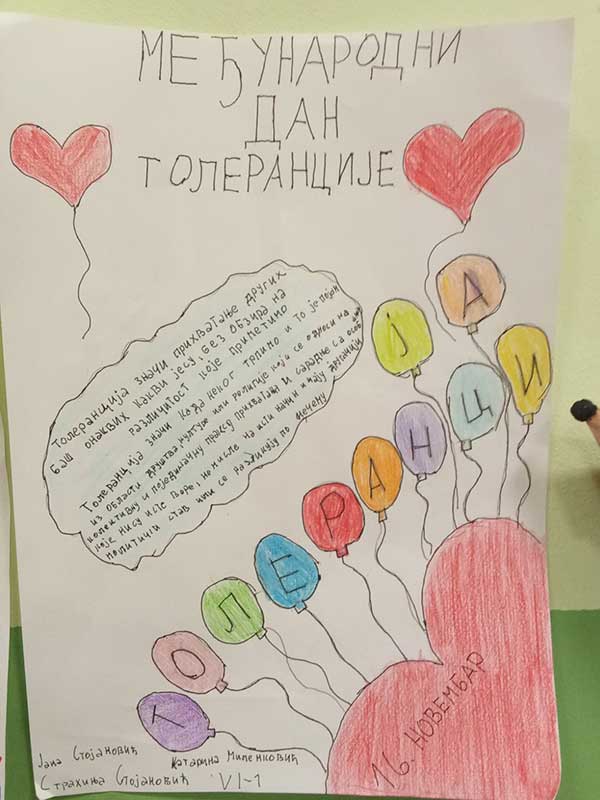 МЕЂУНАРОДНИ
ДАН
ТОЛЕРАНЦИЈЕ
Толеранција значи прихватање других
баш онаквих какви јесу без обзира на
различитост које приметимо
Толеранција значи када неког толимо и то је појам
из области друштва, културе или религије који се односи на
колективну и појединачну праксу прихватања и сарадње са особама
које нису исте вере, но мисле на исти начин имају другачији
политички став или се разликују по нечему
ТОЛЕРАНЦИЈА
16. НОВЕМБАР
Јана Стојановић Катарина Миленковић
Страхиња Стојановић VI-1